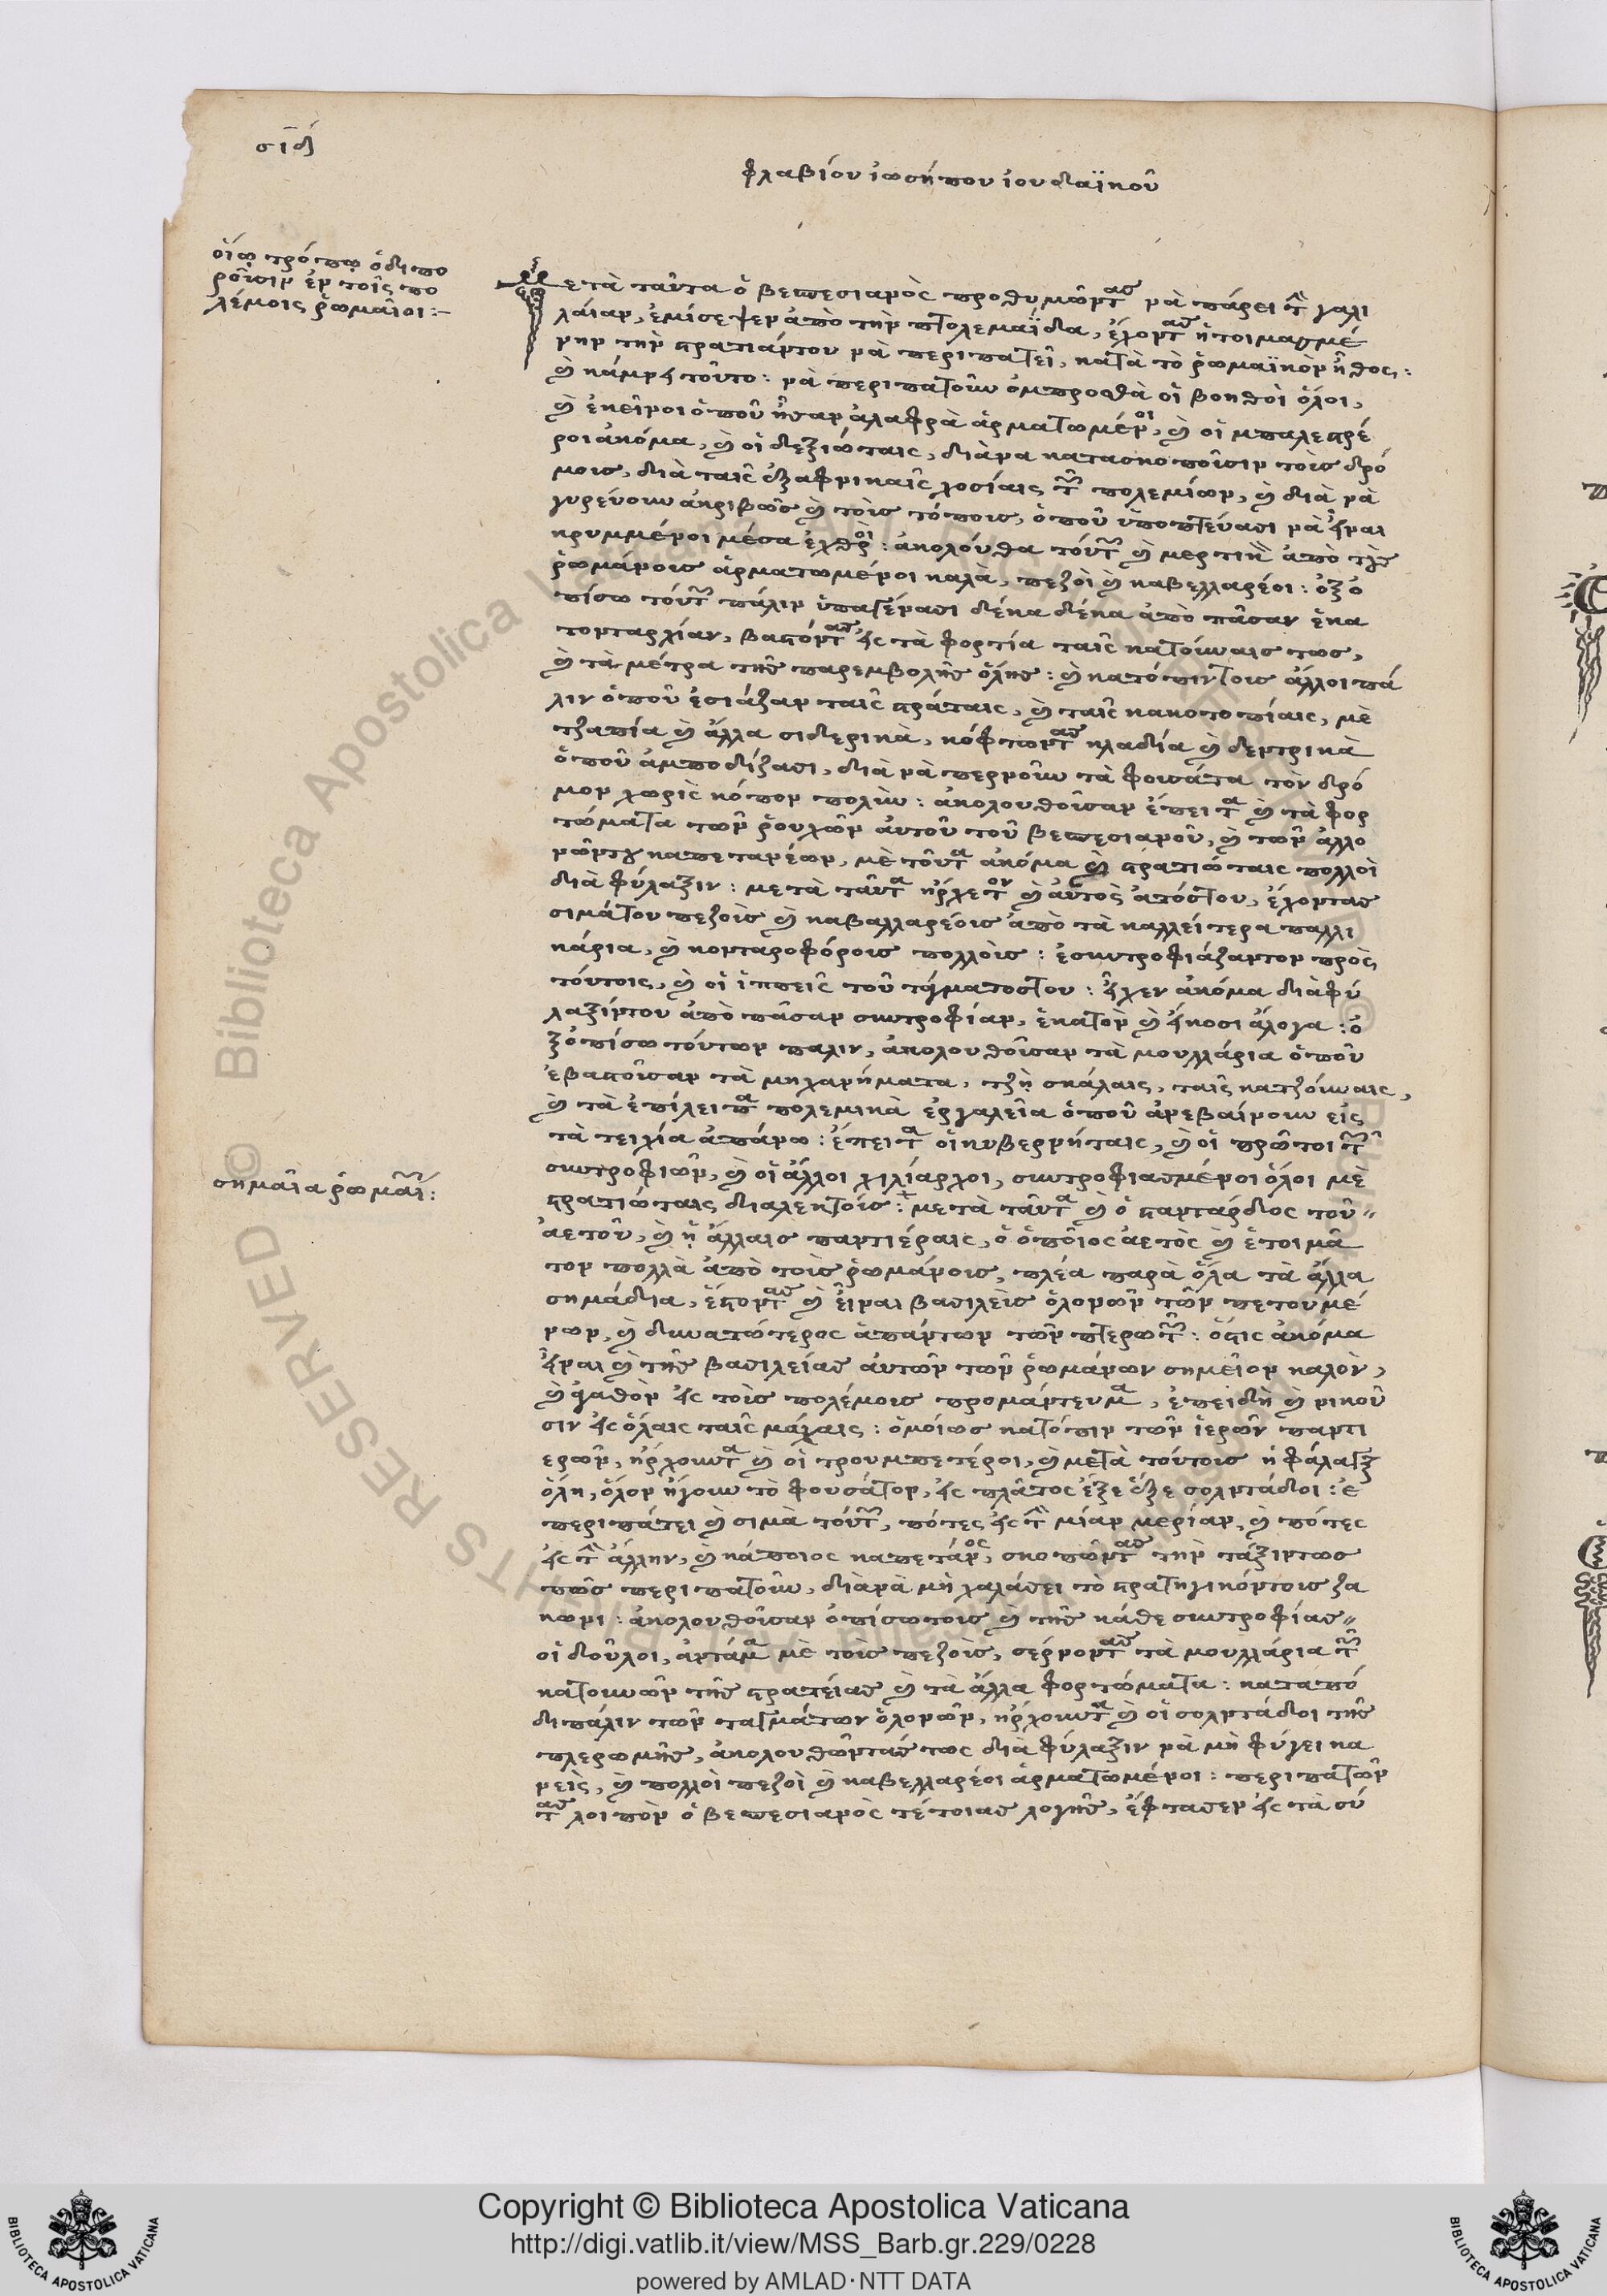 σιδ
φλαβίου ἰωσήπου ἰουδαϊκοῦ
οἵῳ τρόπῳ ὁδιπο
ροῦσιν ἐν τοῖς πο
λέμοις ῥωμαῖοι:-
Μετὰ ταῦτα ὁ βεσπεσιανὸς προθυμῶντας νὰ πάρει τὴν γαλι
λαίαν, ἐμίσεψεν ἀπὸ τὴν πτολεμαΐδα, ἔχοντας ἡτοιμασμέ
νην τὴν στρατιάντου νὰ περιπατεῖ, κατὰ τὸ ῥωμαϊκὸν ἦθος:
καὶ κάμνει τοῦτο: νὰ περιπατοῦν ὀμπροσθὰ οἱ βοηθοὶ ὅλοι,
καὶ ἐκεῖνοι ὁποῦ ἦσαν ἀλαφρὰ ἁρματωμένοι, καὶ οἱ μπαλεστρέ
ροι ἀκόμα, καὶ οἱ δεξιώταις, διὰνα κατασκοποῦσιν τοὺς δρό
μους, διὰ ταῖς ἐξαφνικαῖς χοσίαις τῶν πολεμίων, καὶ διὰ νὰ
γυρεύουν ἀκριβῶς καὶ τοὺς τόπους, ὁποῦ ὑποπτεύασι νὰ εἶναι
κρυμμένοι μέσα ἐχθροὶ: ἀκολούθα τούτων καὶ μερτικὴ ἀπὸ τοὺς
ῥωμάνους ἁρματωμένοι καλὰ, πεζοὶ καὶ καβελλαρέοι: ὀξο
πίσω τούτων πάλιν ὑπαγένασι δέκα δέκα ἀπὸ πᾶσαν ἑκα
τονταρχίαν, βαστόντας εἰς τὰ φορτία ταῖς κατούναις τως,
καὶ τὰ μέτρα τῆς παρεμβολῆς ὅλης: καὶ κατόπιντους ἄλλοι πά
λιν ὁποῦ ἐσιάζαν ταῖς στράταις, καὶ ταῖς κακοτοπίαις, μὲ
τζαπία καὶ ἄλλα σιδερικὰ, κόφτωντας κλαδία καὶ δεντρικὰ
ὁποῦ ἀμποδίζασι, διὰ νὰ περνοῦν τὰ φουσάτα τὸν δρό
μον χωρὶς κόπον πολὺν: ἀκολουθοῦσαν ἔπειτα καὶ τὰ φορ
τώματα τῶν ῥουχῶν αὐτοῦ τοῦ βεσπεσιανοῦ, καὶ τῶν ἀλλο
νῶντου καπετανέων, μὲ τοῦτα ἀκόμα καὶ στρατιώταις πολλοὶ
διὰ φύλαξιν: μετὰ ταῦτα ἤρχετον καὶ αὐτὸς ἀτόςτου, ἔχοντας
σιμάτου πεζοὺς καὶ καβαλλαρέους ἀπὸ τὰ καλλείτερα παλλι
κάρια, καὶ κονταροφόρους πολλοὺς: ἐσυντροφιάζαντον πρὸς
τούτοις, καὶ οἱ ἱππεῖς τοῦ τάγματοςτου: εἶχεν ἀκόμα διὰ φύ
λαξίντου ἀπὸ πᾶσαν συντροφίαν, ἑκατὸν καὶ εἴκοσι ἄλογα: ὀ
ξοπίσω τούτων παλιν, ἀκολουθοῦσαν τὰ μουλλάρια ὁποῦ
ἐβαστοῦσαν τὰ μηχανήματα, τζῆ σκάλαις, ταῖς κατζούναις,
καὶ τὰ ἐπίλειπα πολεμικὰ ἐργαλεῖα ὁποῦ ἀνεβαίνουν εἰς
τὰ τειχία ἀπάνω: ἔπειτα οἱ κυβερνήταις, καὶ οἱ πρῶτοι τῶν
συντροφιῶν, καὶ οἱ ἄλλοι χιλίαρχοι, συντροφιασμένοι ὅλοι μὲ
σημαῖα ῥωμαί:
στρατιώταις διαλεκτοὺς: μετὰ ταῦτα καὶ ὁ σταντάρδος τοῦ
ἀετοῦ, καὶ ᾑ ἄλλαις παντιέραις, ὁ ὁποῖος ἀετὸς καὶ ἐτοιμᾶ
τον πολλὰ ἀπὸ τοὺς ῥωμάνους, πλέα παρὰ ὅλα τὰ ἄλλα
σημάδια, ἔστοντας καὶ εἶναι βασιλεὺς ὁλονῶν τῶν πετουμέ
νων, καὶ δυνατώτερος ἁπάντων τῶν πτερωτῶν: ὅστις ἀκόμα
εἶναι καὶ τῆς βασιλείας αὐτῶν τῶν ῥωμάνων σημεῖον καλὸν,
καὶ ἀγαθὸν εἰς τοὺς πολέμους προμάντευμα, ἐπειδὴ καὶ νικοῦ
σιν εἰς ὅλαις ταῖς μάχαις: ὁμοίως κατόπιν τῶν ἱερῶν παντι
ερῶν, ἤρχουντα καὶ οἱ τρουμπετέροι, καὶ μετὰ τούτους ἡ φάλαγξ
ὅλη, ὅλον ἤγουν τὸ φουσάτον, εἰς πλᾶτος ἔξε ἔξε σολντάδοι: ἐ
περιπάτει καὶ σιμὰ τούτων, πότες εἰς τὴν μίαν μερίαν, καὶ πότες
εἰς τὴν ἄλλην, καὶ κάποιος καπετάνος, σκοπῶντας τὴν τάξιντως
πῶς περιπατοῦν, διὰνὰ μὴ χαλάσει τὸ στρατηγικόντους ζα
κωνι: ἀκολουθοῦσαν ὀπίσωτους καὶ τῆς κάθε συντροφίας
οἱ δοῦλοι, ἀντάμα μὲ τοὺς πεζοὺς, σέρνοντας τὰ μουλλάρια τῶν
κατουνῶν τῆς στρατείας καὶ τὰ ἄλλα φορτώματα: καταπό
δι πάλιν τῶν ταγμάτων ὁλονῶν, ἤρχουντα καὶ οἱ σολντάδοι τῆς
πλερωμῆς, ἀκολουθῶντάς τως διὰ φύλαξιν νὰ μὴ φύγει κα
νεὶς, καὶ πολλοὶ πεζοὶ καὶ καβελλαρέοι ἁρματωμένοι: περιπατῶν
τας λοιπὸν ὁ βεσπεσιανὸς τέτοιας λογῆς, ἔφτασεν εἰς τὰ σύ
Copyright © Biblioteca Apostolica Vaticana
http://digi.vatlib.it/view/MSS_Barb.gr.229/0228
powered by AMLAD·NTT DATA